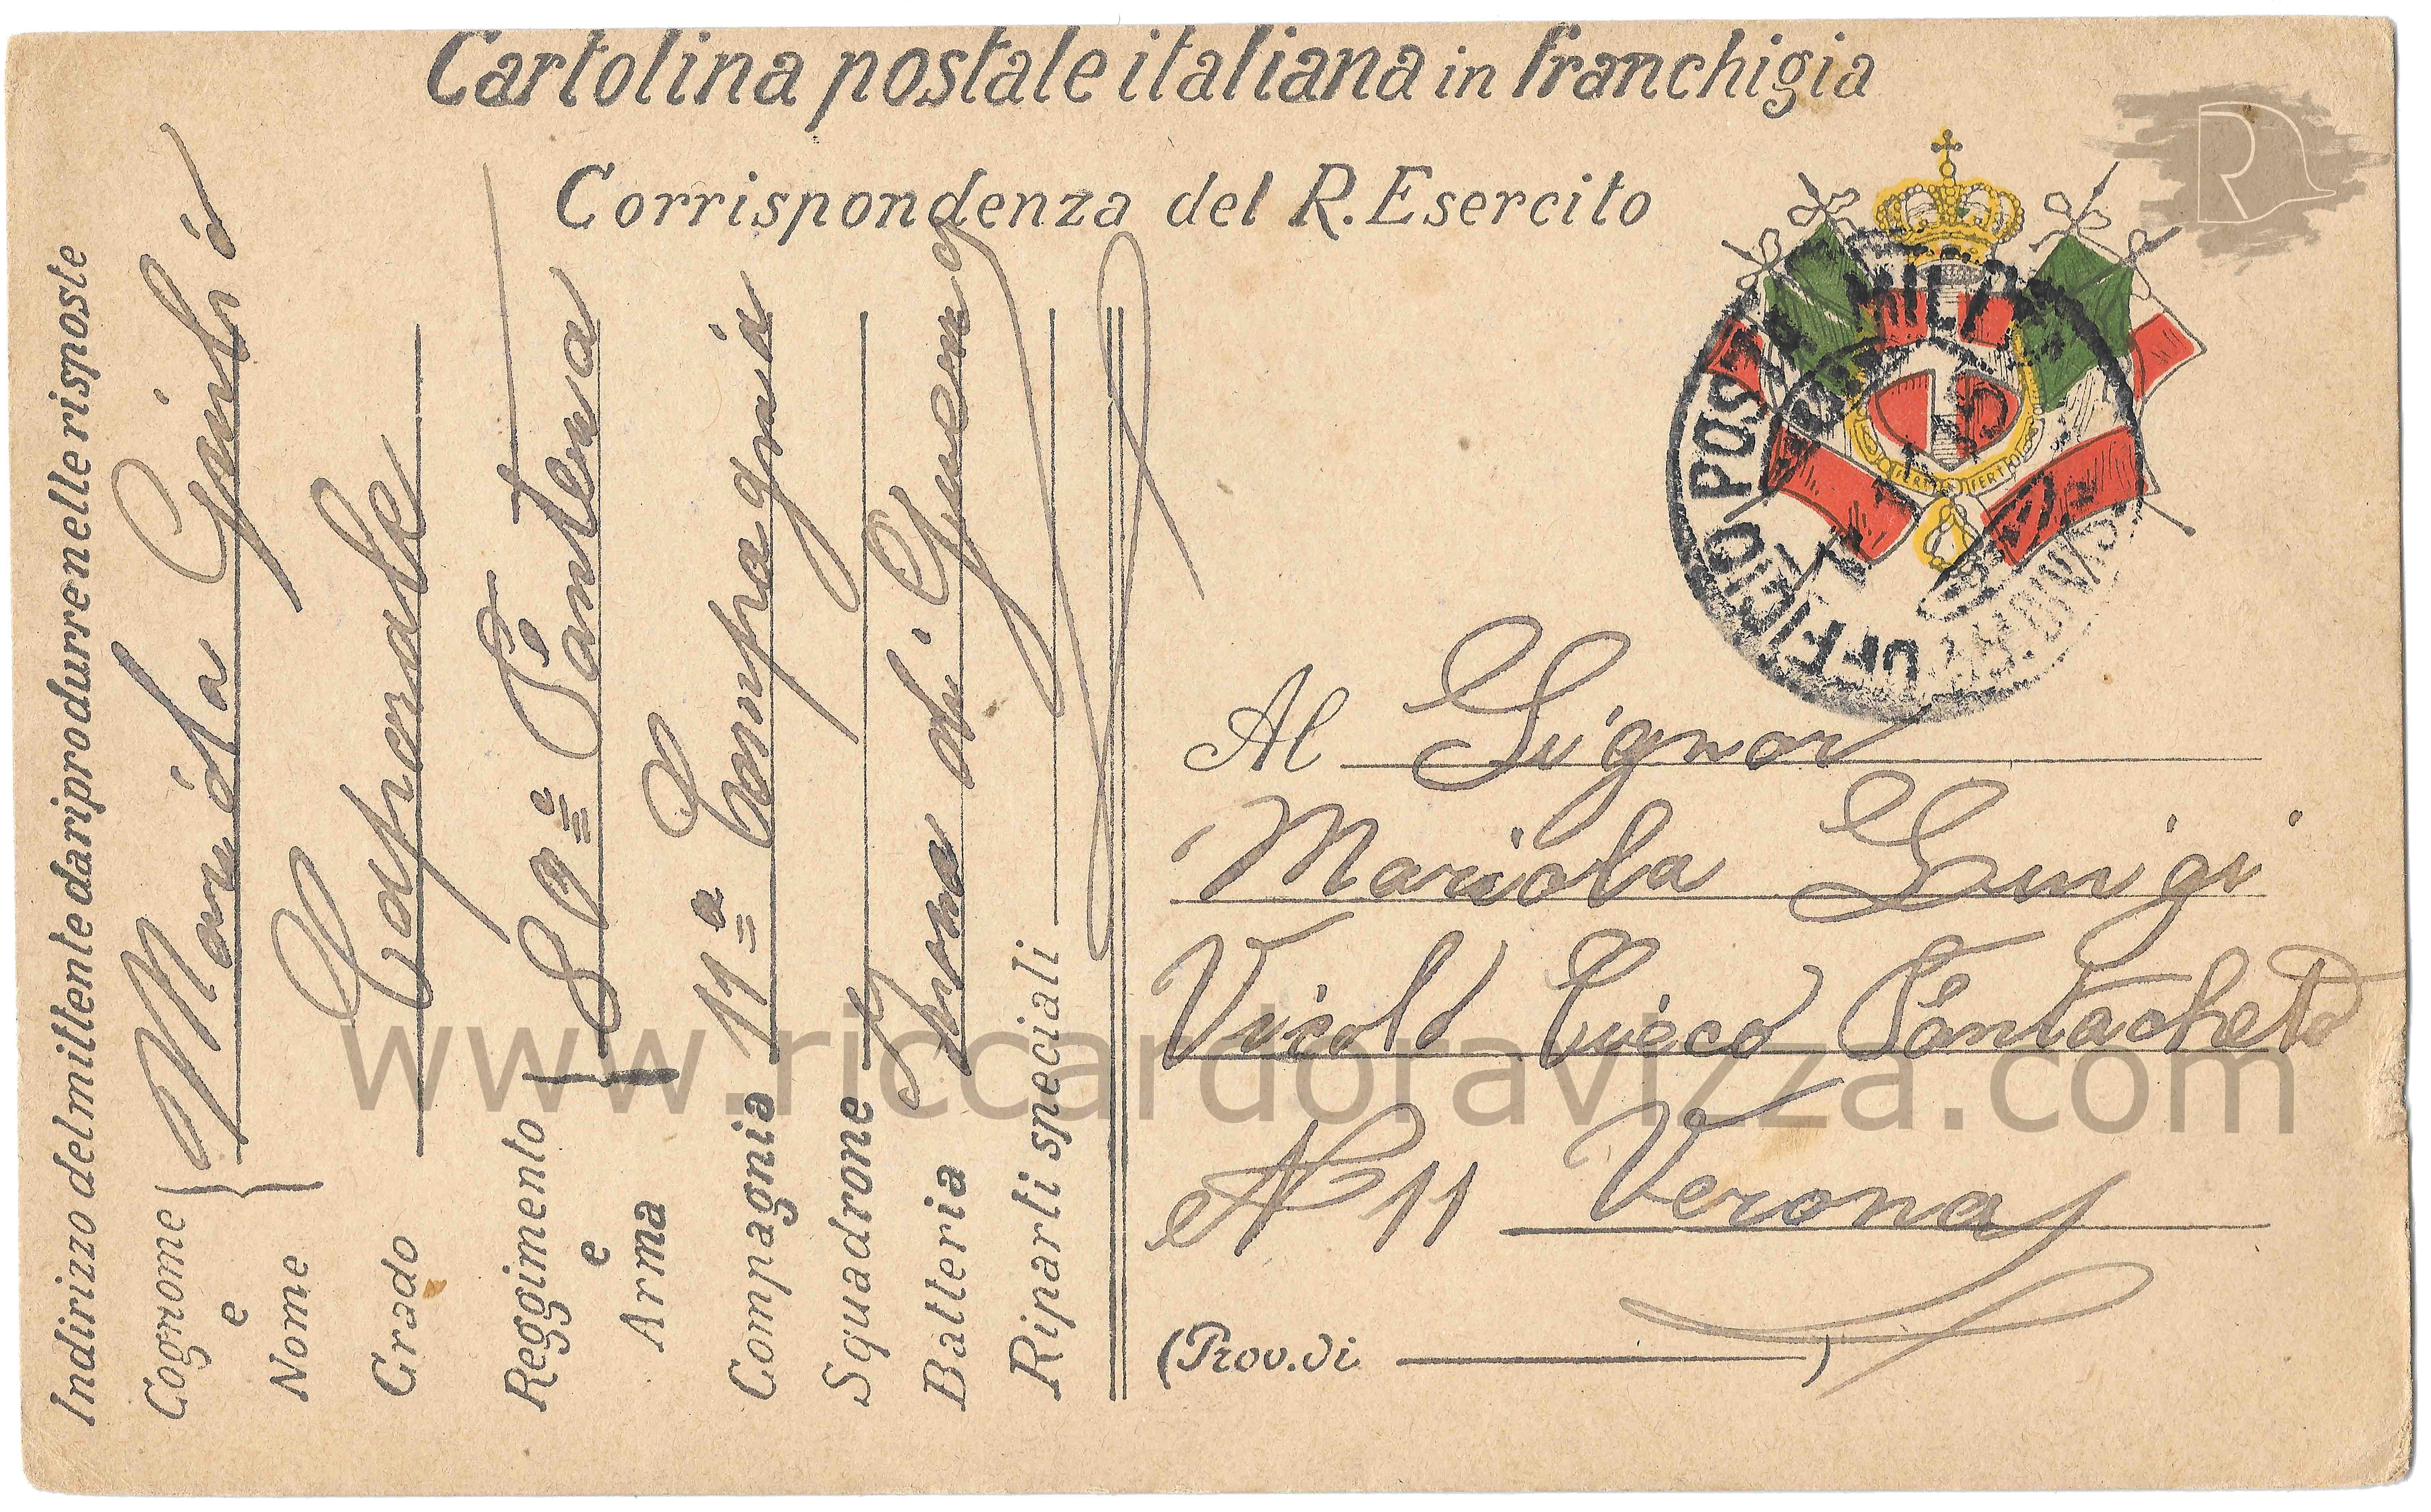 Cartolina postale italiana in franchigia
Corrispondenza del R. Esercito
Indirizzo del mittente da riprodurre nelle risposte
Cognome e Nome } Mariola Giulio
Grado Caporale
Reggimento e Arma } 89º Fanteria
Compagnia 11ª Compagnia
Squadrone
Batteria Zona di Guerra
Riparti speciali
UFFICIO POSTA MILITARE
DIVIS
Al Signor
Mariola Luigi
Vicolo Cieco Pontachetto
Nº 11 Verona
(Prov. di )
R
www.riccardoravizza.com